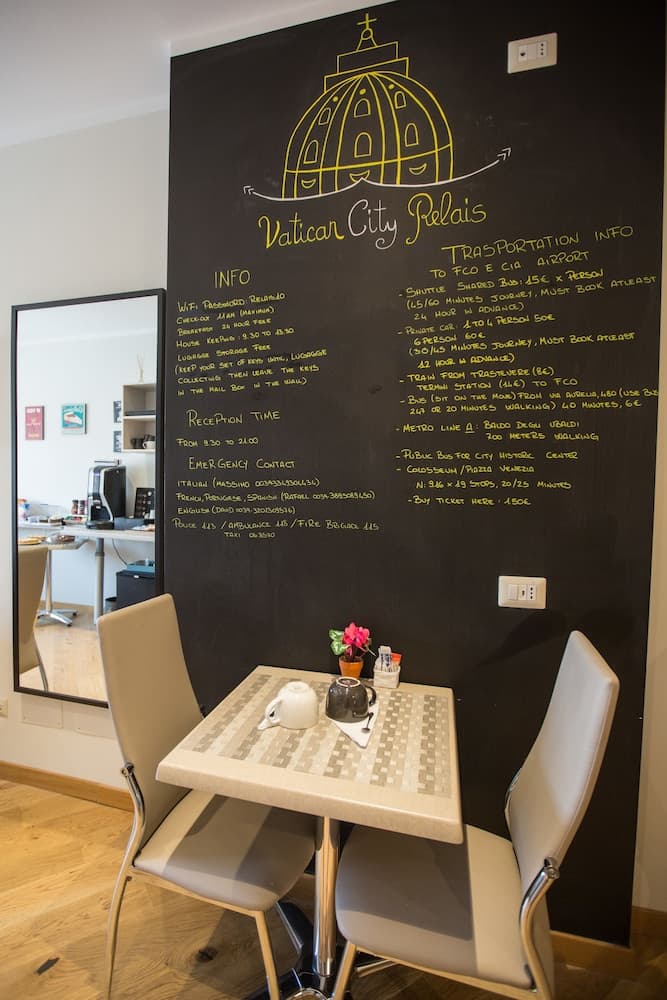 Vatican City Relais
INFO
WiFi PASSWORD: RELAIS1D
CHECK-OUT 11AM (MAXIMUM)
BREAKFAST 24 HOUR FREE
HOUSE KEEPING: 9.30 TO 13.30
LUGHAGGE STORAGE FREE
(KEEP YOUR SET OF KEYS UNTIL LUGGAGE
COLLECTING THEN LEAVE THE KEYS
IN THE MAIL BOX IN THE HALL)
RECEPTION TIME
FROM 9.30 TO 21.00
EMERGENCY CONTACT
ITALIAN (MASSIMO
FRENCH, PORTUGHESE, SPANISH (RAFAEL
ENGLISH (DAVID
POLICE 113 / AMBULANCE 118 / FIRE BRIGADE 115
TAXI 063570
TRASPORTATION INFO
TO FCO E CIA AIRPORT
- SHUTTLE SHARED BUS: 15€ X PERSON
(45/60 MINUTES JOURNEY, MUST BOOK ATLEAST
24 HOUR IN ADVANCE)
- PRIVATE CAR: 1 TO 4 PERSON 50€
6 PERSON 60€
(30/45 MINUTES JOURNEY, MUST BOOK ATLEAST
12 HOUR IN ADVANCE)
- TRAIN FROM TRASTEVERE (8€)
TERMINI STATION (14€) TO FCO
- BUS (SIT ON THE MOVE) FROM VIA AURELIA, 480 (USE BUS
247 OR 20 MINUTES WALKING) 40 MINUTES, 6€
- METRO LINE A: BALDO DEGLI UBALDI
700 METERS WALKING
- PUBLIC BUS FOR CITY HISTORIC CENTER
- COLOSSEUM / PIAZZA VENEZIA
N: 916 X 19 STOPS, 20/25 MINUTES
- BUY TICKET HERE: 1.50€